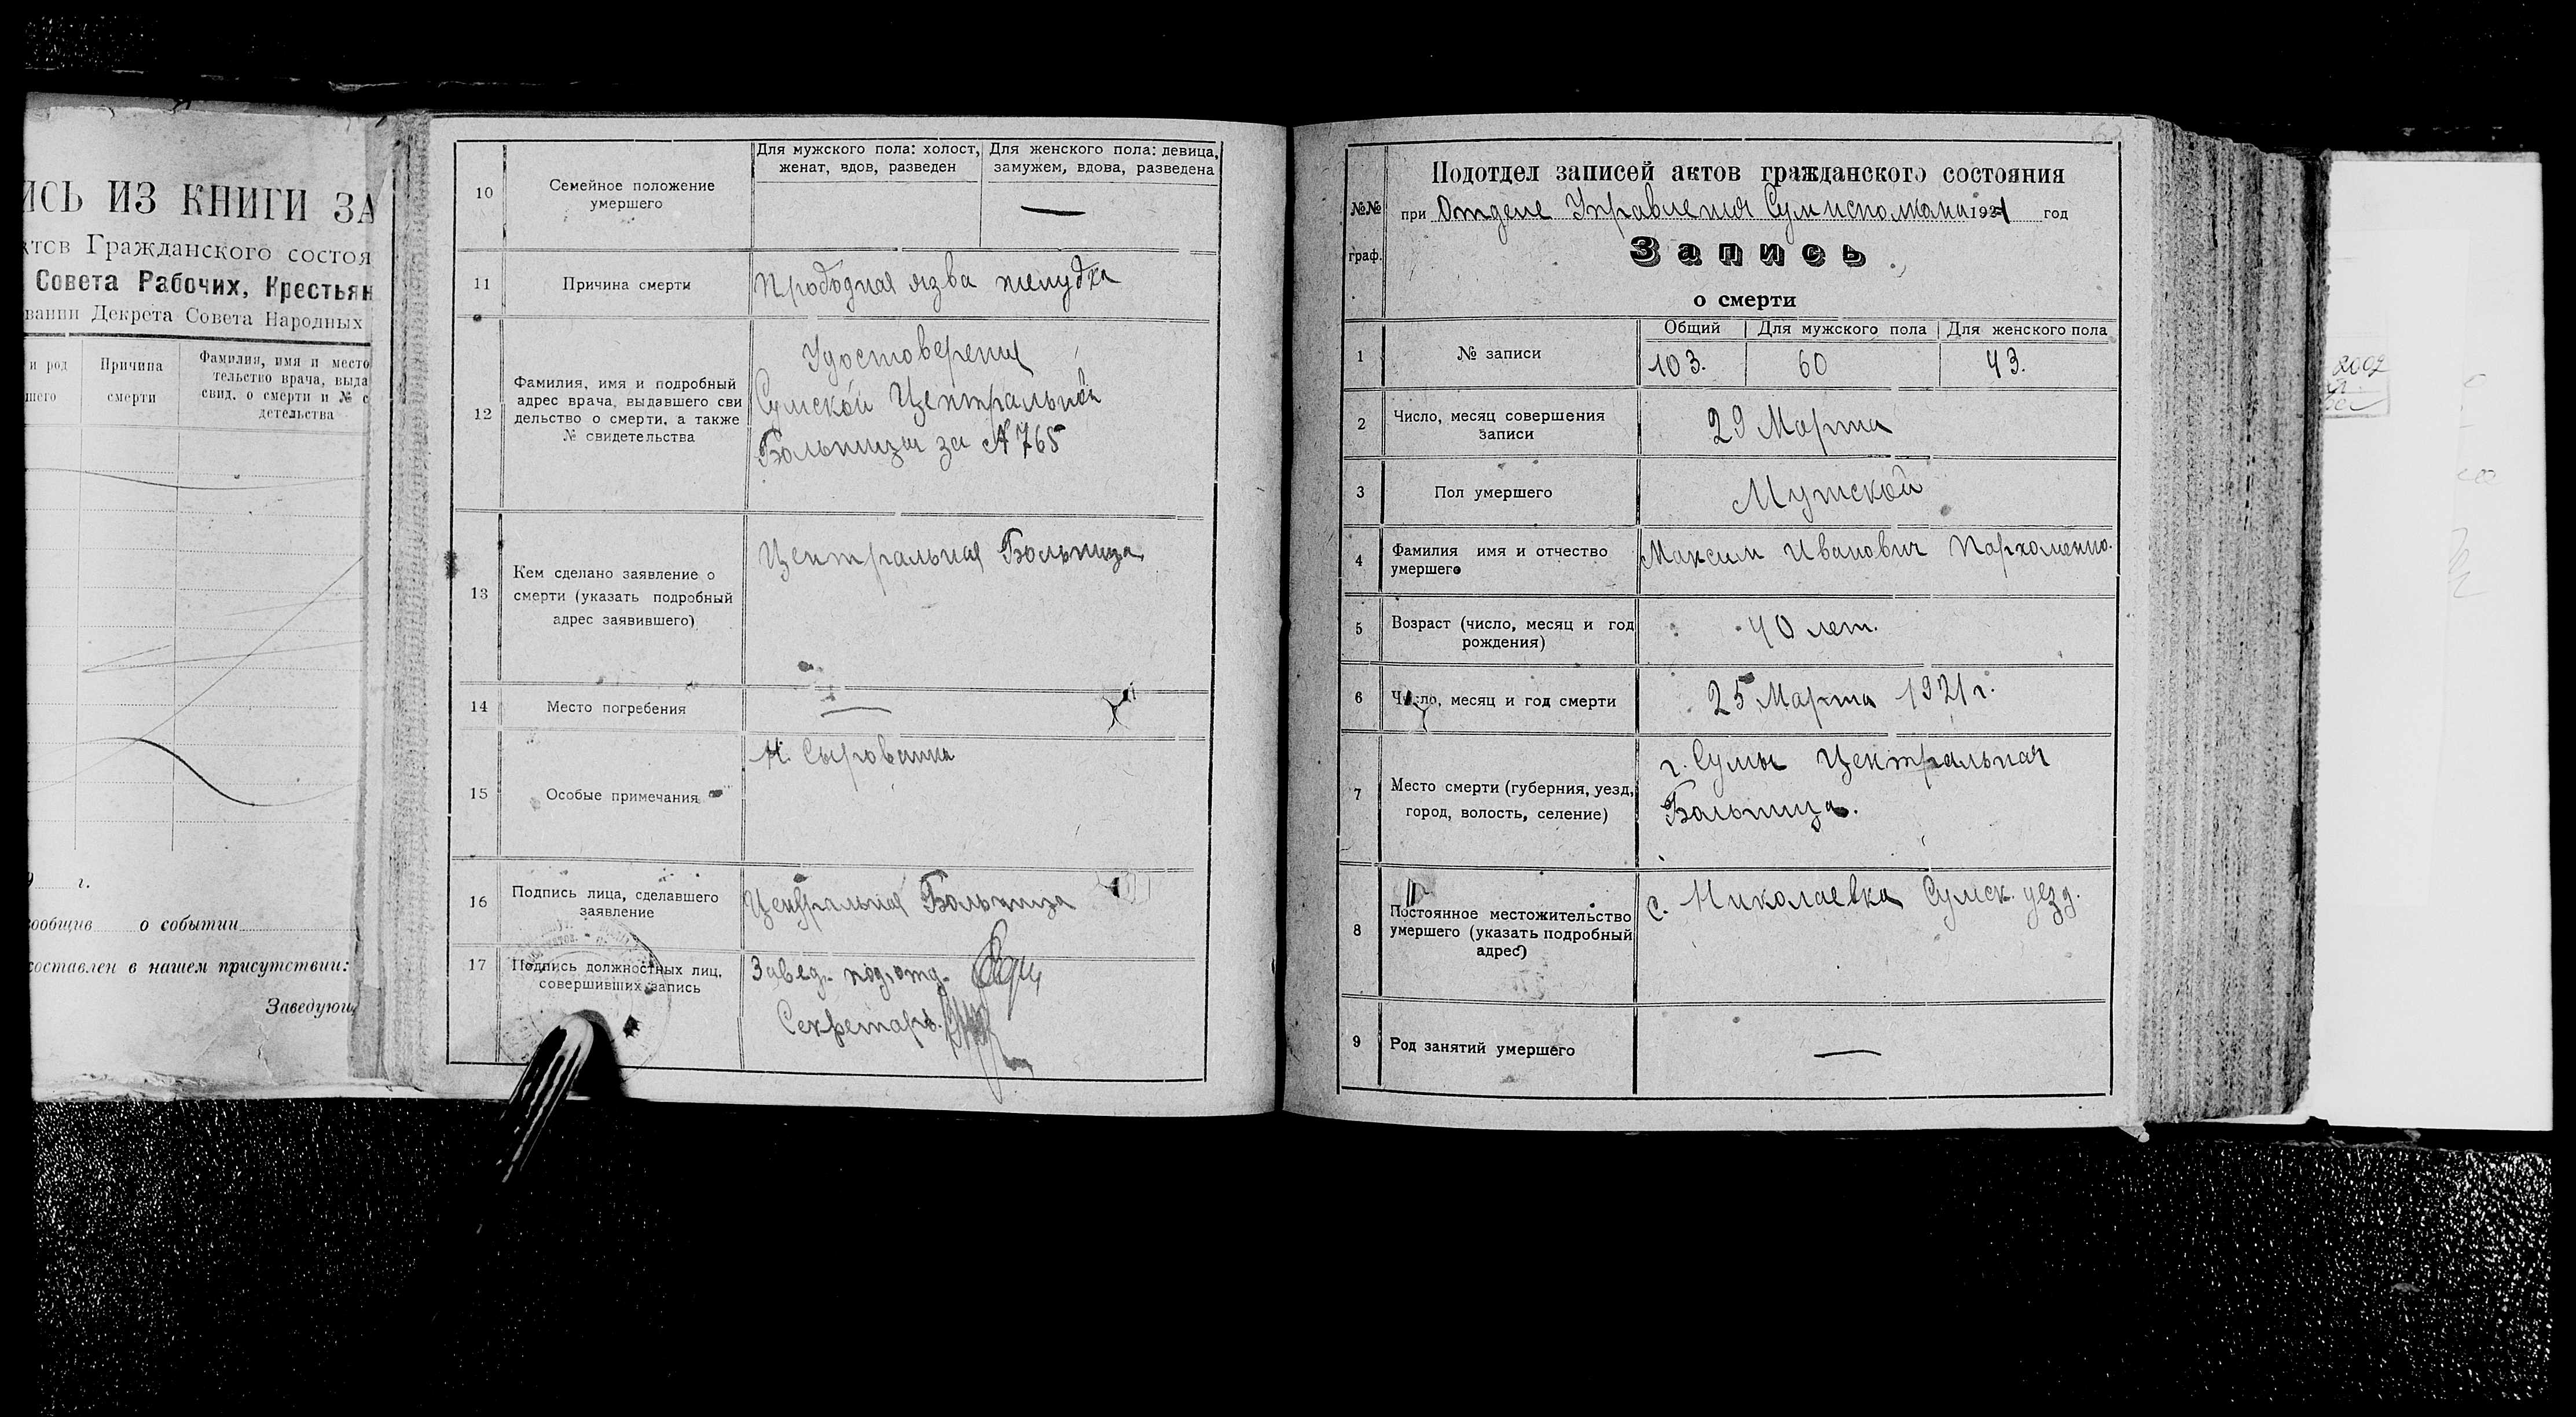 ИСЬ ИЗ КНИГИ ЗА
ктов Гражданского состоя
Совета Рабочих, Крестьян
вании Декрета Совета Народных
и род
шего
Причина
смерти
Фамилия, имя и место
тельство врача, выда
свид. о смерти и № с
детельства
г.
сообщив о событии
составлен в нашем присутствии:
Заведующ
10
Семейное положение
умершего
Для мужского пола: холост,
женат, вдов, разведен
Для женского пола: девица,
замужем, вдова, разведена
—
11
Причина смерти
Прободная язва желудка
12
Фамилия, имя и подробный
адрес врача, выдавшего сви
дельство о смерти, а также
№ свидетельства
Удостоверение
Сумской Центральной
Больницы за № 765
13
Кем сделано заявление о
смерти (указать подробный
адрес заявившего)
Центральная Больница
14
Место погребения
—
15
Особые примечания
Н. Сыроватка
16
Подпись лица, сделавшего
заявление
Центральная Больница
17
Подпись должностных лиц,
совершивших запись
Завед. подотд.
Секретарь
№№
граф.
Подотдел записей актов гражданского состояния
при Отделе Управления Сумисполкома 1921 год
Запись
о смерти
1
№ записи
Общий
Для мужского пола
Для женского пола
103.
60
43.
2
Число, месяц совершения
записи
29 Марта
3
Пол умершего
Мужской
4
Фамилия имя и отчество
умершего
Максим Иванович Пархоменко.
5
Возраст (число, месяц и год
рождения)
40 лет.
6
Число, месяц и год смерти
25 Марта 1921 г.
7
Место смерти (губерния, уезд,
город, волость, селение)
г. Сумы Центральная
Больница.
8
Постоянное местожительство
умершего (указать подробный
адрес)
с. Николаевка Сумск. уезд.
9
Род занятий умершего
—
2002